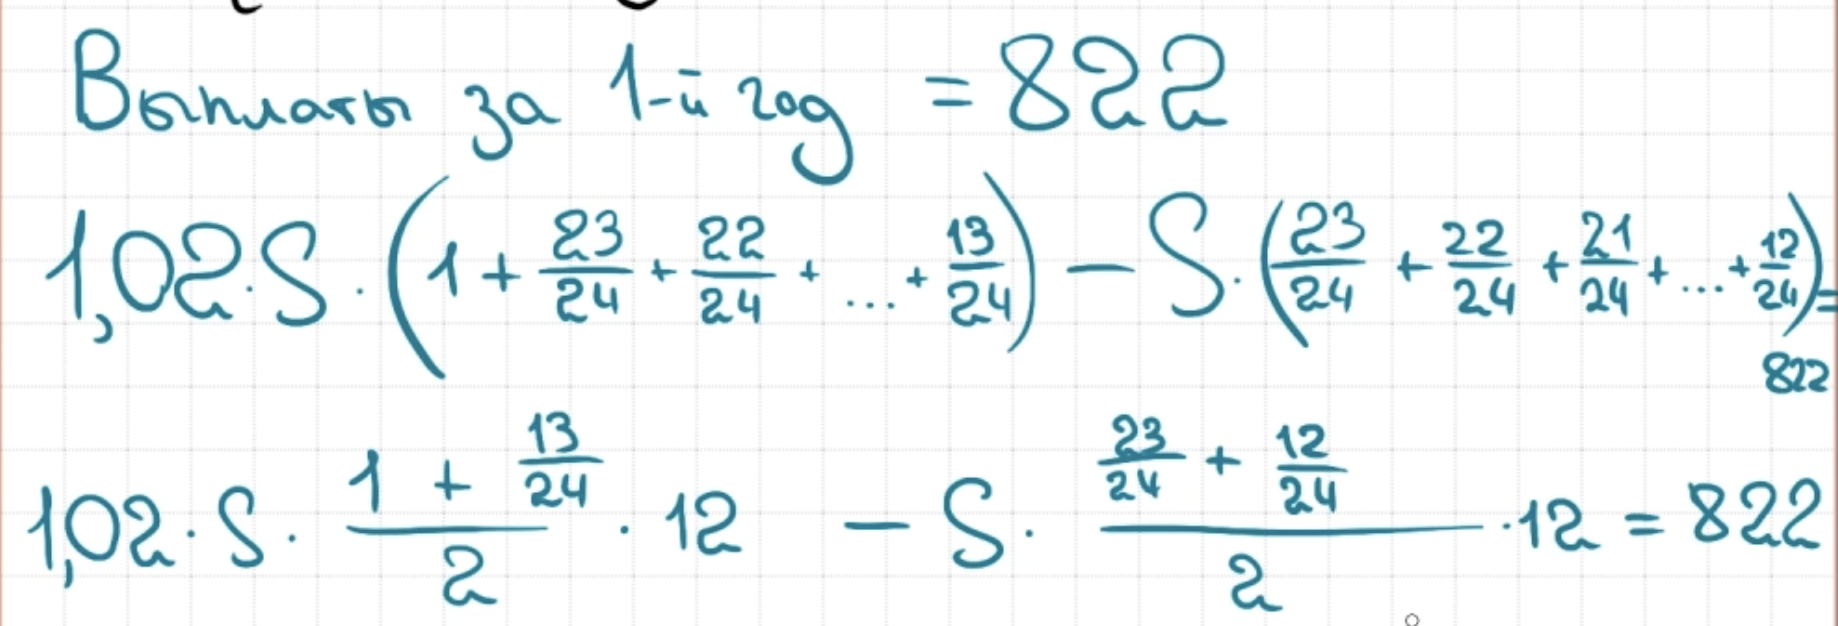 Выплаты за 1-й год = 822
1,02·S·(1 + 23/24 + 22/24 + ... + 13/24) − S·(23/24 + 22/24 + 21/24 + ... + 12/24) =
822
1,02·S· (1 + 13/24)/2 · 12 − S· (23/24 + 12/24)/2 ·12 = 822